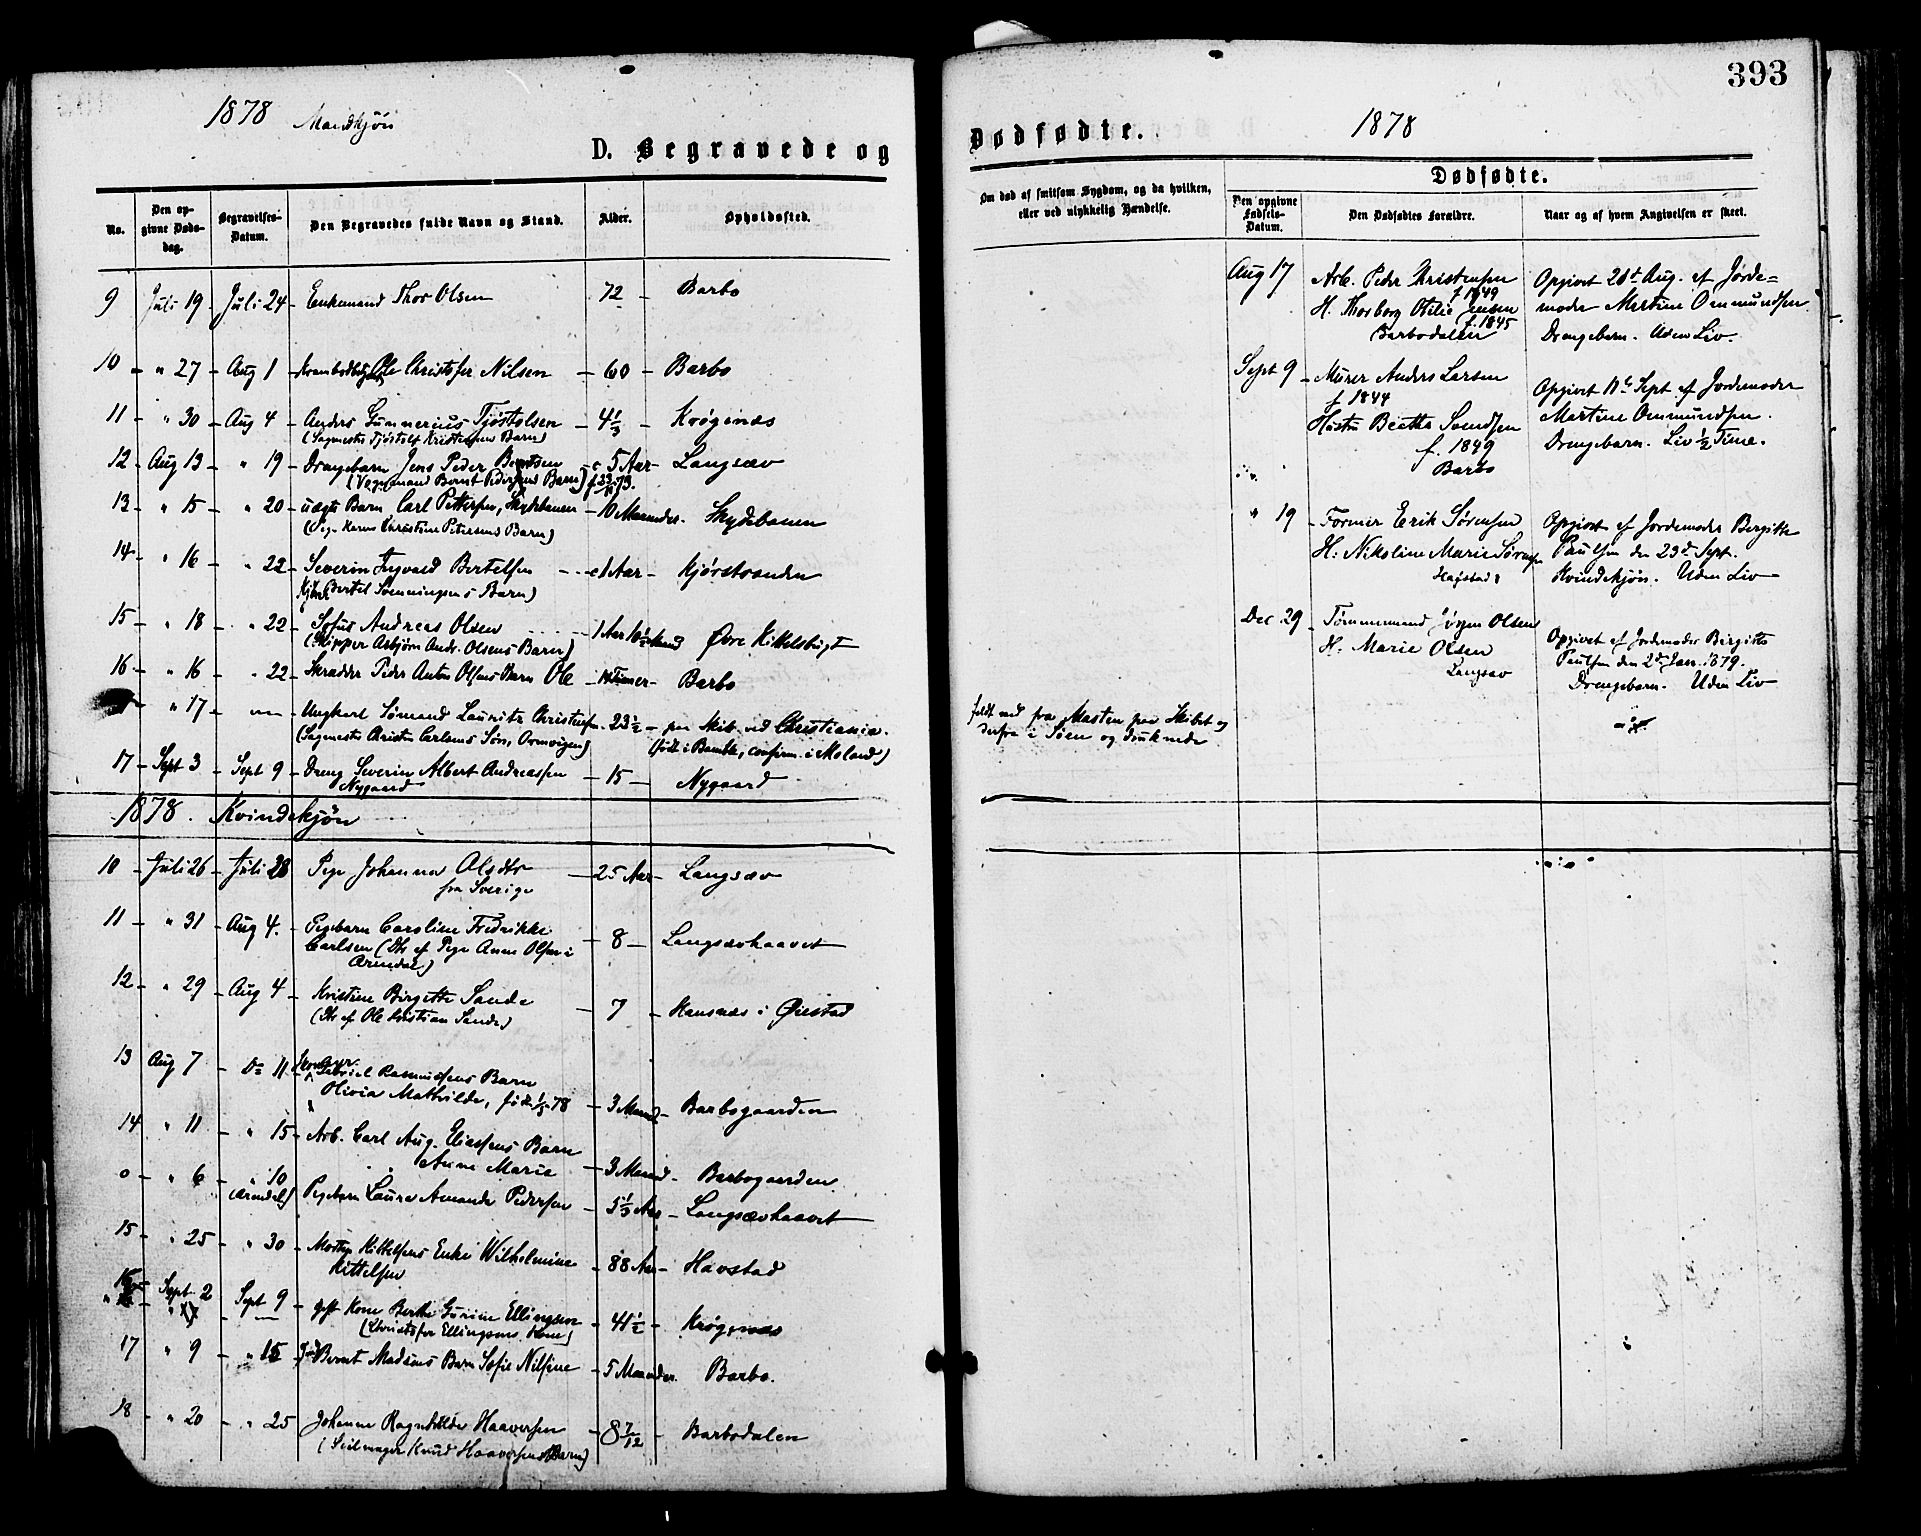 393
1878 Mandkjøn
1878
D. Begravede og Dødfødte.
No.
Den opgivne Dødsdag.
Begravelses-Datum.
Den Begravedes fulde Navn og Stand.
Alder.
Opholdssted.
Om død af smitsom Sygdom, og da hvilken, eller ved ulykkelig Hændelse.
Dødfødte.
Den opgivne Fødsels-Datum.
Den Dødfødtes Forældre.
Naar og af hvem Angivelsen er skeet.
9 Juli 19 Juli 24 Enkemand Thor Olsen 72 Barbo
10 " 27 Aug 1 Ole Christofer Nilsen 60 Barbo
11 " 30 Aug 4 Anders Gunnerius Tjøstolsen 4 1/3 Krøgenæs
(Sagmester Tjøstolf Kristensens Barn)
12 Aug 13 " 19 Drengebarn Jens Peder Berntsen c 5 Aar Langsæv
(Vognmand Bernt Pedersens Barn)
13 " 15 " 20 uægte Barn Carl Pettersen, Skydebanen 10 Maaneder Skydebanen
(Pige Karen Christine Petersens Barn)
14 " 16 " 22 Severin Ingvald Bertelsen c 1 Aar Kjørstranden
Bertel Sømmingens Barn)
15 " 18 " 22 Sofus Andreas Olsen 1 Aar 10 1/2 Maaned Øvre Kittelsbugt
(Skipper Asbjørn Andr. Olsens Barn)
16 " 16 " 22 Skrædder Peder Anton Olsens Barn Ole 14 Timer Barbo
" 17 Ungkarl Sømand Lauritz Christensen 23 1/2 paa Skib ved Christiania.
(Sagmester Christen Carlsens Søn, Ormvigen) (født i Bamble, confirm. i Moland)
faldt ned fra Masten paa Skibet og
derfra i Søen og druknede
17 Sept 3 Sept 9 Dreng Severin Albert Andreassen 15 Nygaard
Nygaard
1878. Kvindekjøn
10 Juli 26 Juli 28 Pige Johanna Olsdtr 25 Aar Langsæv
fra Sverige
11 " 31 Aug 4. Pigebarn Caroline Fredrikke
Carlsen (Dtr af Pige Anne Olsen i 8 Langsævhaavet
Arendal)
12 " 29 Aug 4 Kristine Birgitte Sande 7 Hansnæs i Øiestad
(Dtr af Ole Kristian Sande)
13 Aug 7 Do 11 Gabriel Rasmussens Barn
Olivia Mathilde, født 78 3 Maand Barbogaarden
14 " 11 " 15 Arb. Carl Aug. Eliassens Barn
Anne Marie 3 Maaned Barbogaarden
o " 6 " 10
(Arendal) Pigebarn Laura Amanda Pedersen 5 1/3 Aar Langsævhaavet
15 " 25 " 30 Morten Kittelsens Enke Wilhelmine 88 Aar Havstad
Kittelsen
16 Sept 2 Sept 9 gift Kone Berthe Gurine Ellingsen 41 1/2 Krøgenæs
(Christofer Ellingsens Kone)
17 " 9 " 15 Bernt Madsens Barn Sofie Nilsine 5 Maaneder Barbo.
18 " 20 " 25 Johanne Ragnhilde Haaversen 8 7/12 Barbodalen
(Seilmager Knud Haaversens Barn)
Aug 17 Arb. Peder Kristensen
f 1849
H. Thorborg Otilie Jensen
f. 1845
Barbodalen
Opgivet 20d Aug. af Jorde-
moder Martine Ommundsen.
Drengebarn. Uden Liv.
Sept 9 Murer Anders Larsen
f 1844
Hustru Beathe Svendsen
f. 1849
Barbo
Opgivet 11te Sept. af Jordemoder
Martine Ommundsen.
Drengebarn. Liv 1/2 Time.
" 19 Former Erik Sørensen
H. Nikoline Marie Sørensen
Havstad
Opgivet af Jordemoder Bergitte
Paulsen den 23d Sept.
Kvindekjøn. Uden Liv
Dec 29 Tømmermand Jørgen Olsen
H. Marie Olsen
Langsæv
Opgivet af Jordemoder Birgitte
Paulsen den 2d Jan. 1879.
Drengebarn. Uden Liv